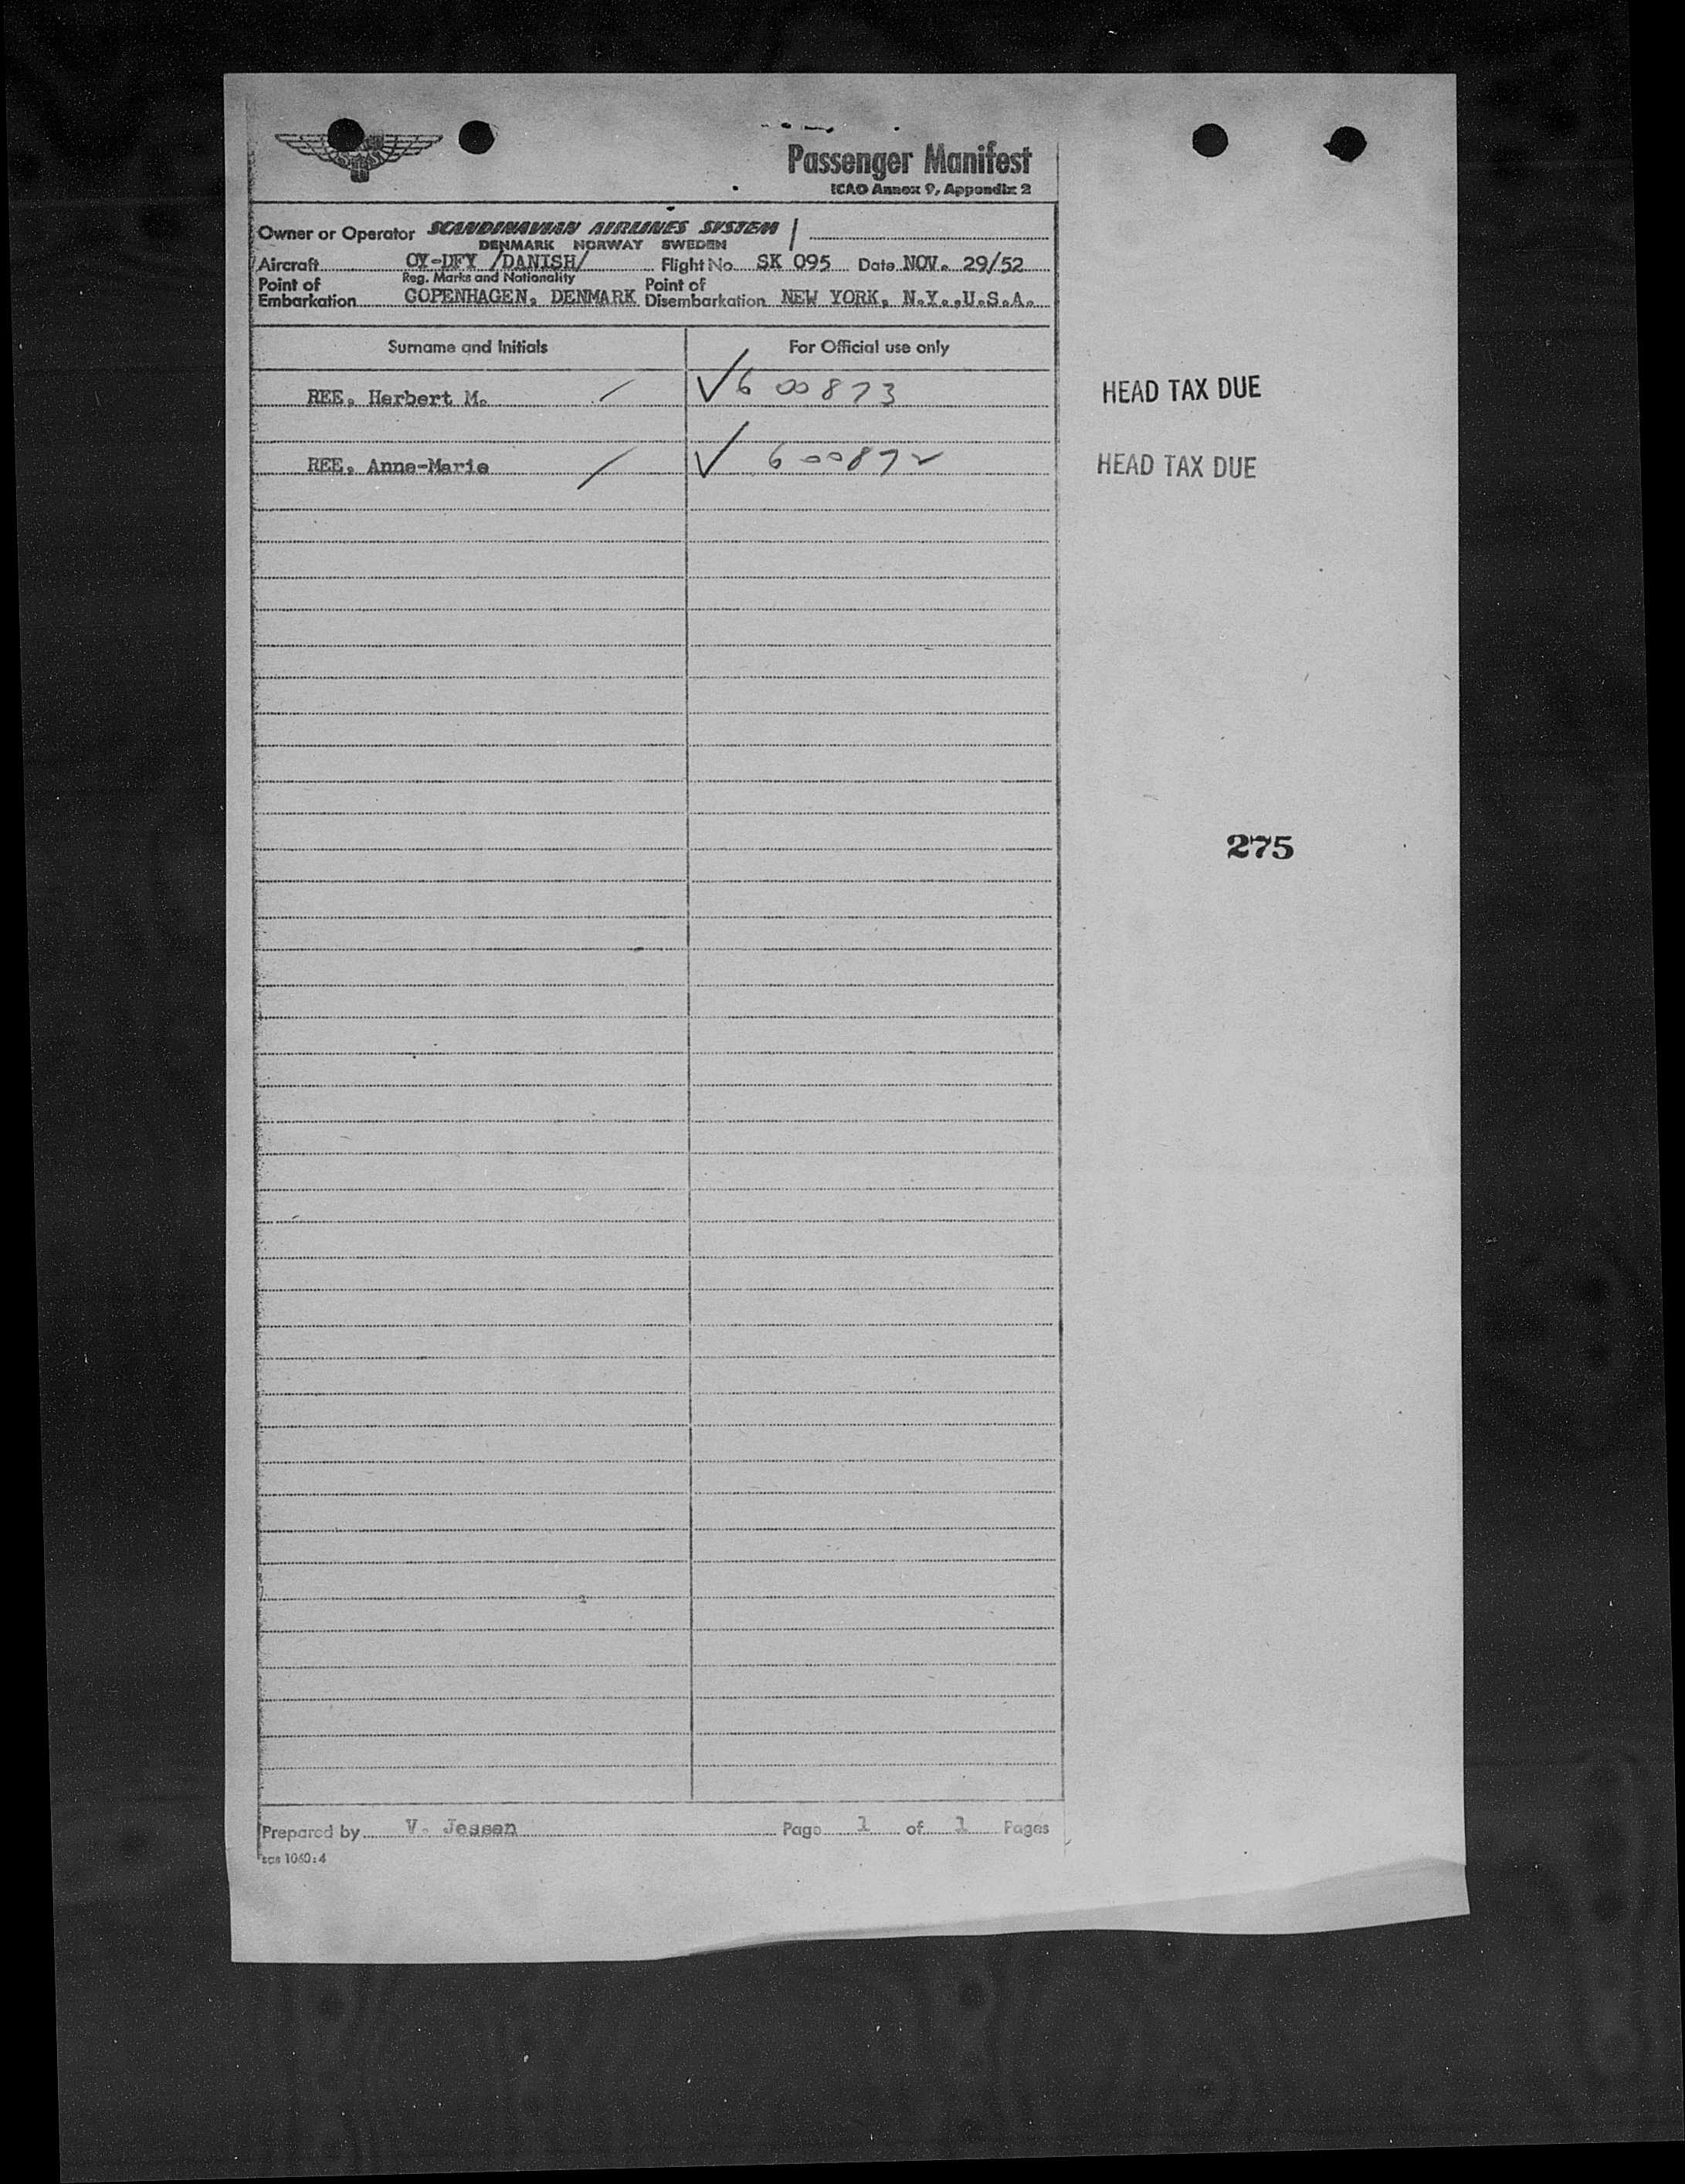 Passenger Manifest
ICAO Annex 9, Appendix 2
Owner or Operator SCANDINAVIAN AIRLINES SYSTEM
DENMARK NORWAY SWEDEN
Aircraft OY-DFY /DANISH/ Flight No. SK 095 Date NOV. 29/52
Reg. Marks and Nationality
Point of Embarkation COPENHAGEN, DENMARK Point of Disembarkation NEW YORK, N.Y.,U.S.A.
Surname and Initials For Official use only
REE, Herbert M. / ✓ 600873 HEAD TAX DUE
REE, Anne-Marie / ✓ 600872 HEAD TAX DUE
275
Prepared by V. Jessen Page 1 of 1 Pages
sas 1060:4